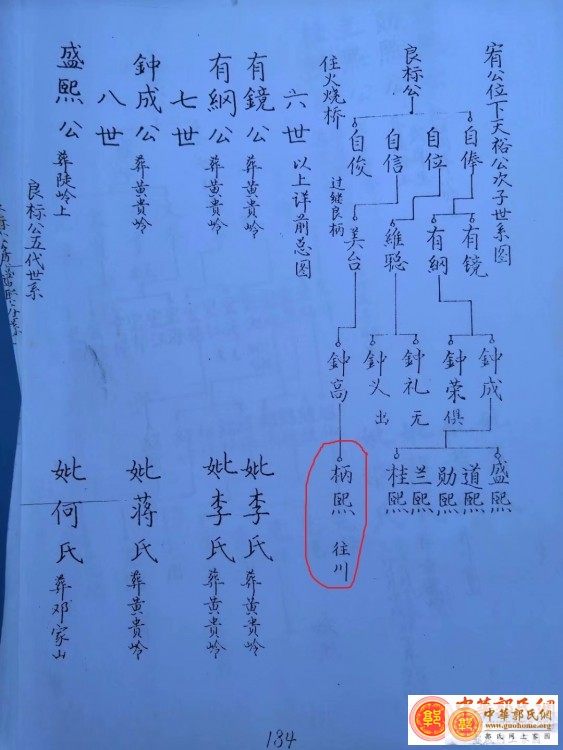 宥公位下天裕公次子世系图
良标公
住火烧桥
自俸
自位
自信
自俊
过继良柄
有镜
有綱
維聪
美台
鈡成
鈡荣
俱
鈡礼
无
鈡义
出
鈡高
盛熙
道熙
勋熙
兰熙
桂熙
柄熙 往川
六世 以上详前总图
有鏡公 葬黄貴岭 妣李氏 葬黄貴岭
有綱公 葬黄貴岭 妣李氏 葬黄貴岭
七世
鈡成公 葬黄貴岭 妣蒋氏 葬黄貴岭
八世
盛熙公 葬陡岭上 妣何氏 葬邓家山
良标公五代世系
134
中華郭氏網
www.guohome.org
郭氏网上家园